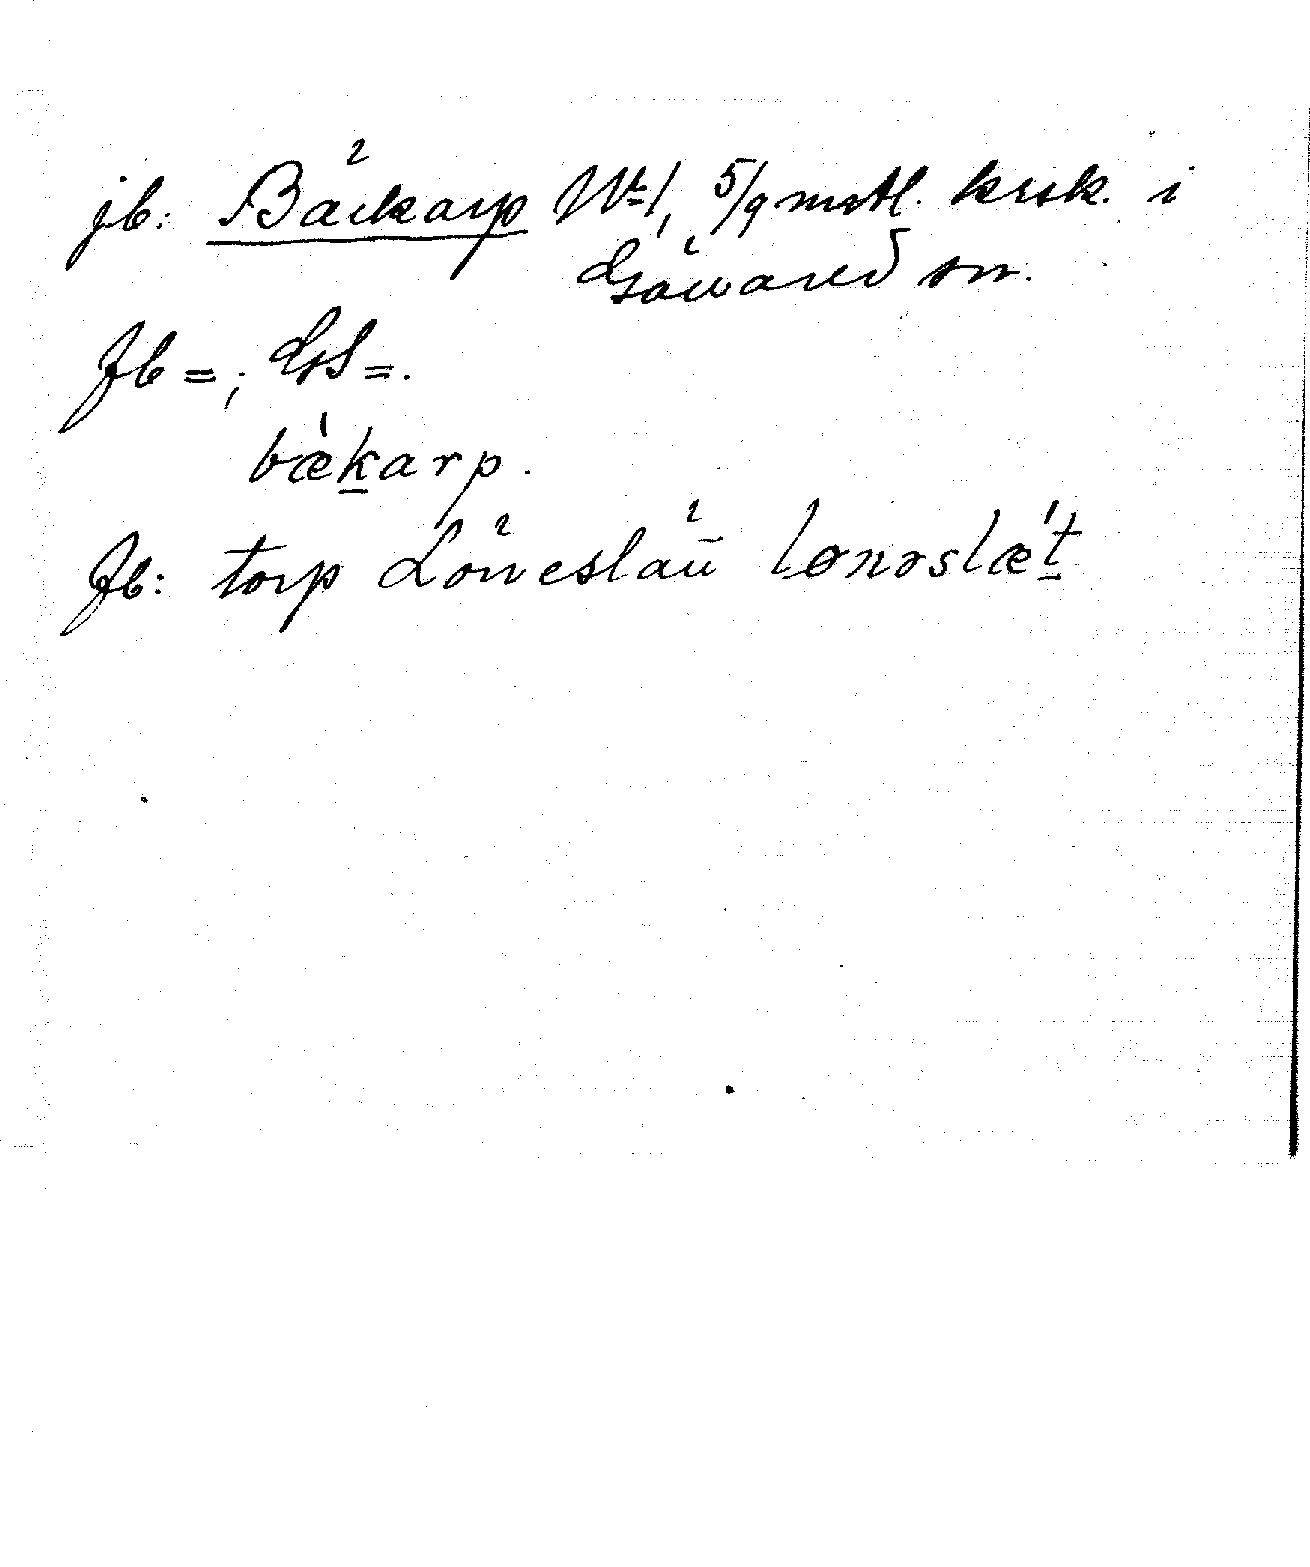 jb: Bäckarp Nt 1, 5/9 mstl. krsk. i
Gåvared sn.
Jb =; GS =.
bækarp.
Jb: torp Löneslätt lønəslæt